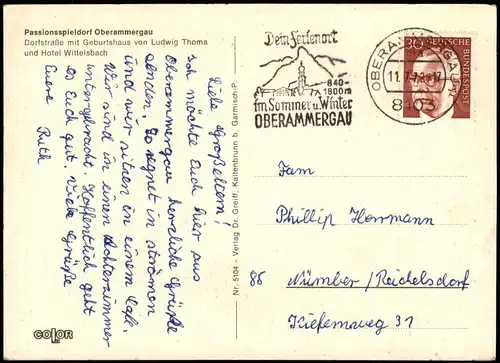 Passionsspieldorf Oberammergau
Dorfstraße mit Geburtshaus von Ludwig Thoma
und Hotel Wittelsbach
Liebe Großeltern!
Ich möchte Euch hier aus
Oberammergau herzliche Grüße
senden. Es regnet in strömen
und wir sitzen in einem Café.
Wir sind in einem Achterzimmer
untergebracht. Hoffentlich geht
es Euch gut. Viele Grüße
Eure Ruth
COLOR
Nr. 5104 - Verlag Dr. Greiff, Kaltenbrunn b. Garmisch-P.
Dein Ferienort
840-
1800m
im Sommer u. Winter
OBERAMMERGAU
OBERAMMERGAU
8103
30
DEUTSCHE
BUNDESPOST
Fam
Phillip Herrmann
86 Nürnber/Reichelsdorf
Kiefernweg 31